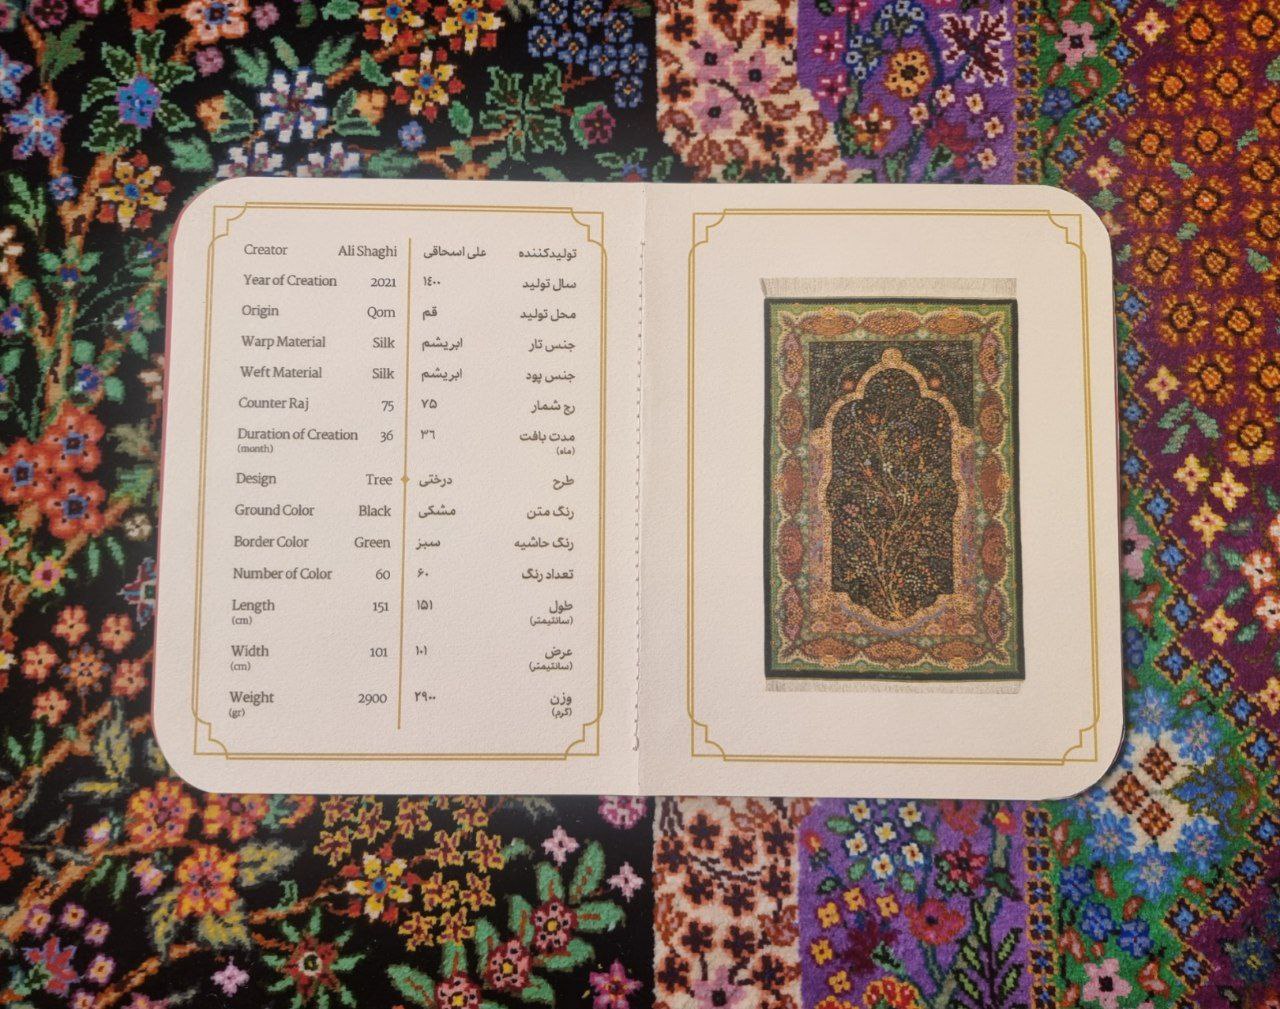 Creator Ali Shaghi علی اسحاقی تولیدکننده
Year of Creation 2021 ۱٤۰۰ سال تولید
Origin Qom قم محل تولید
Warp Material Silk ابریشم جنس تار
Weft Material Silk ابریشم جنس پود
Counter Raj 75 ۷۵ رج شمار
Duration of Creation 36 ۳٦ مدت بافت
(month) (ماه)
Design Tree درختی طرح
Ground Color Black مشکی رنگ متن
Border Color Green سبز رنگ حاشیه
Number of Color 60 ۶۰ تعداد رنگ
Length 151 ۱۵۱ طول
(cm) (سانتیمتر)
Width 101 ۱۰۱ عرض
(cm) (سانتیمتر)
Weight 2900 ۲۹۰۰ وزن
(gr) (گرم)